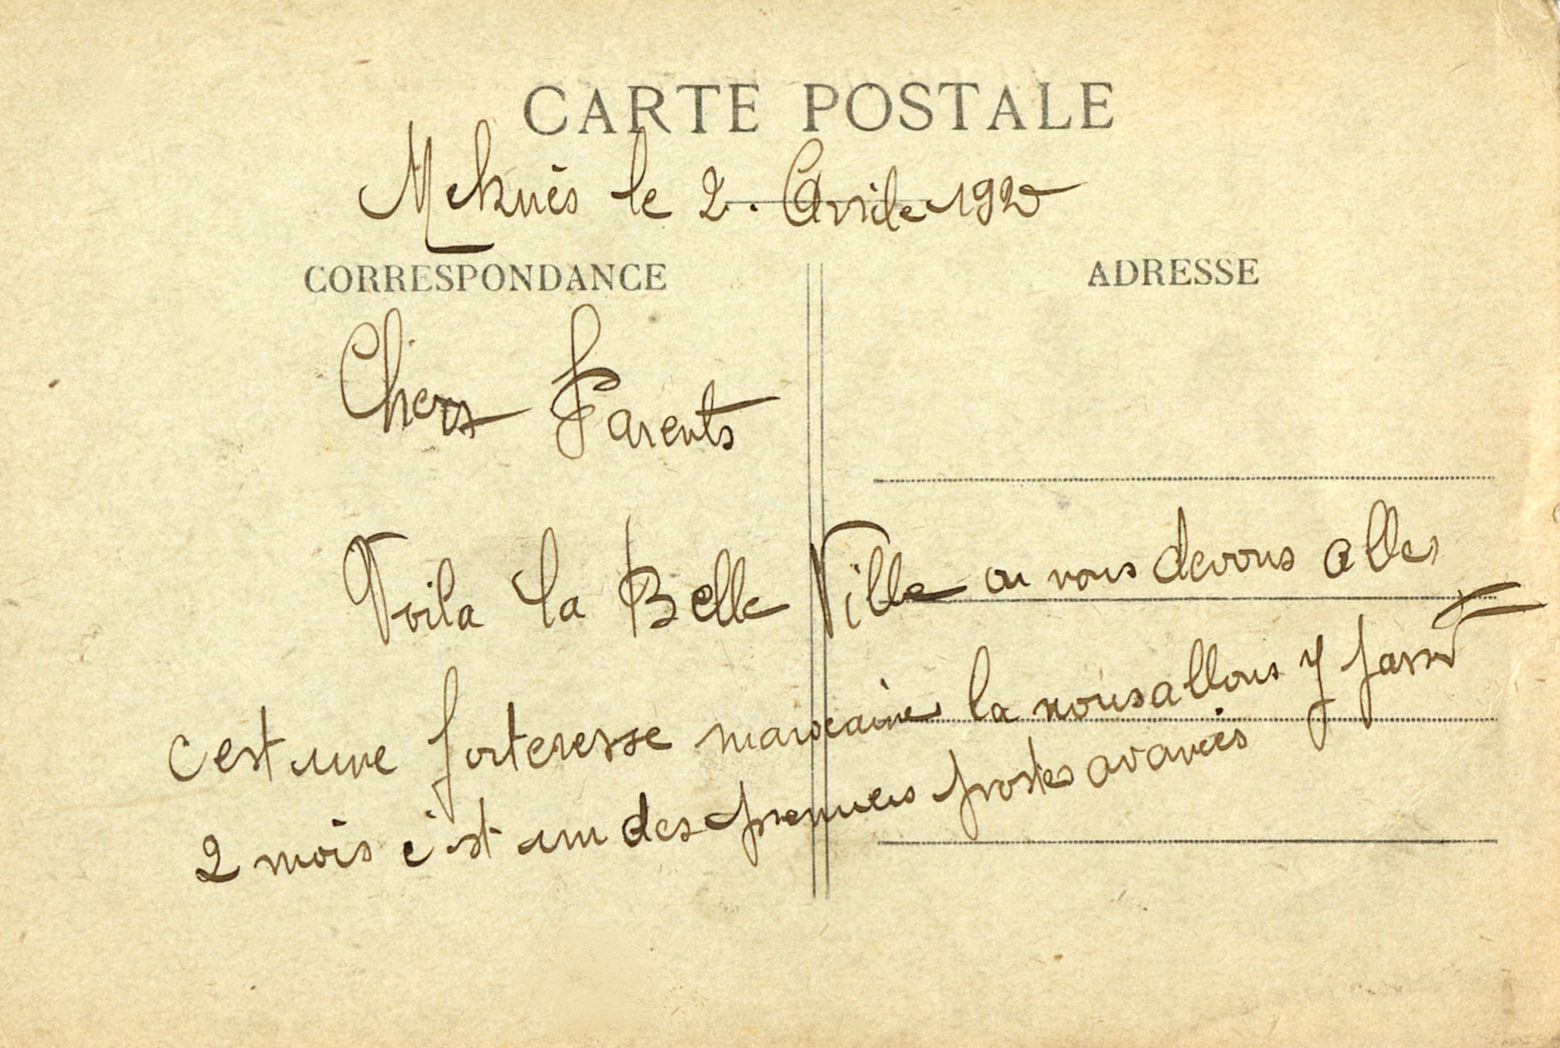 CARTE POSTALE
Meknès le 2. Avrile 1920
CORRESPONDANCE
ADRESSE
Chers Parents
Voila la Belle Ville ou nous devons aller
c est une forteresse marocaine la nous allons y passer
2 mois c'est un des premiers postes avancés